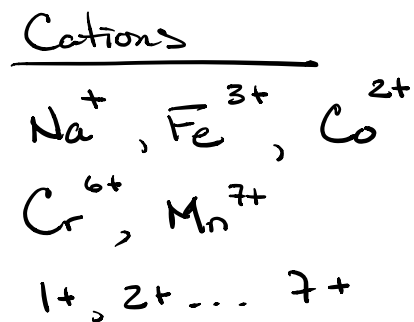 Cations
Na⁺, Fe³⁺, Co²⁺
Cr⁶⁺, Mn⁷⁺
1+, 2+ ... 7+